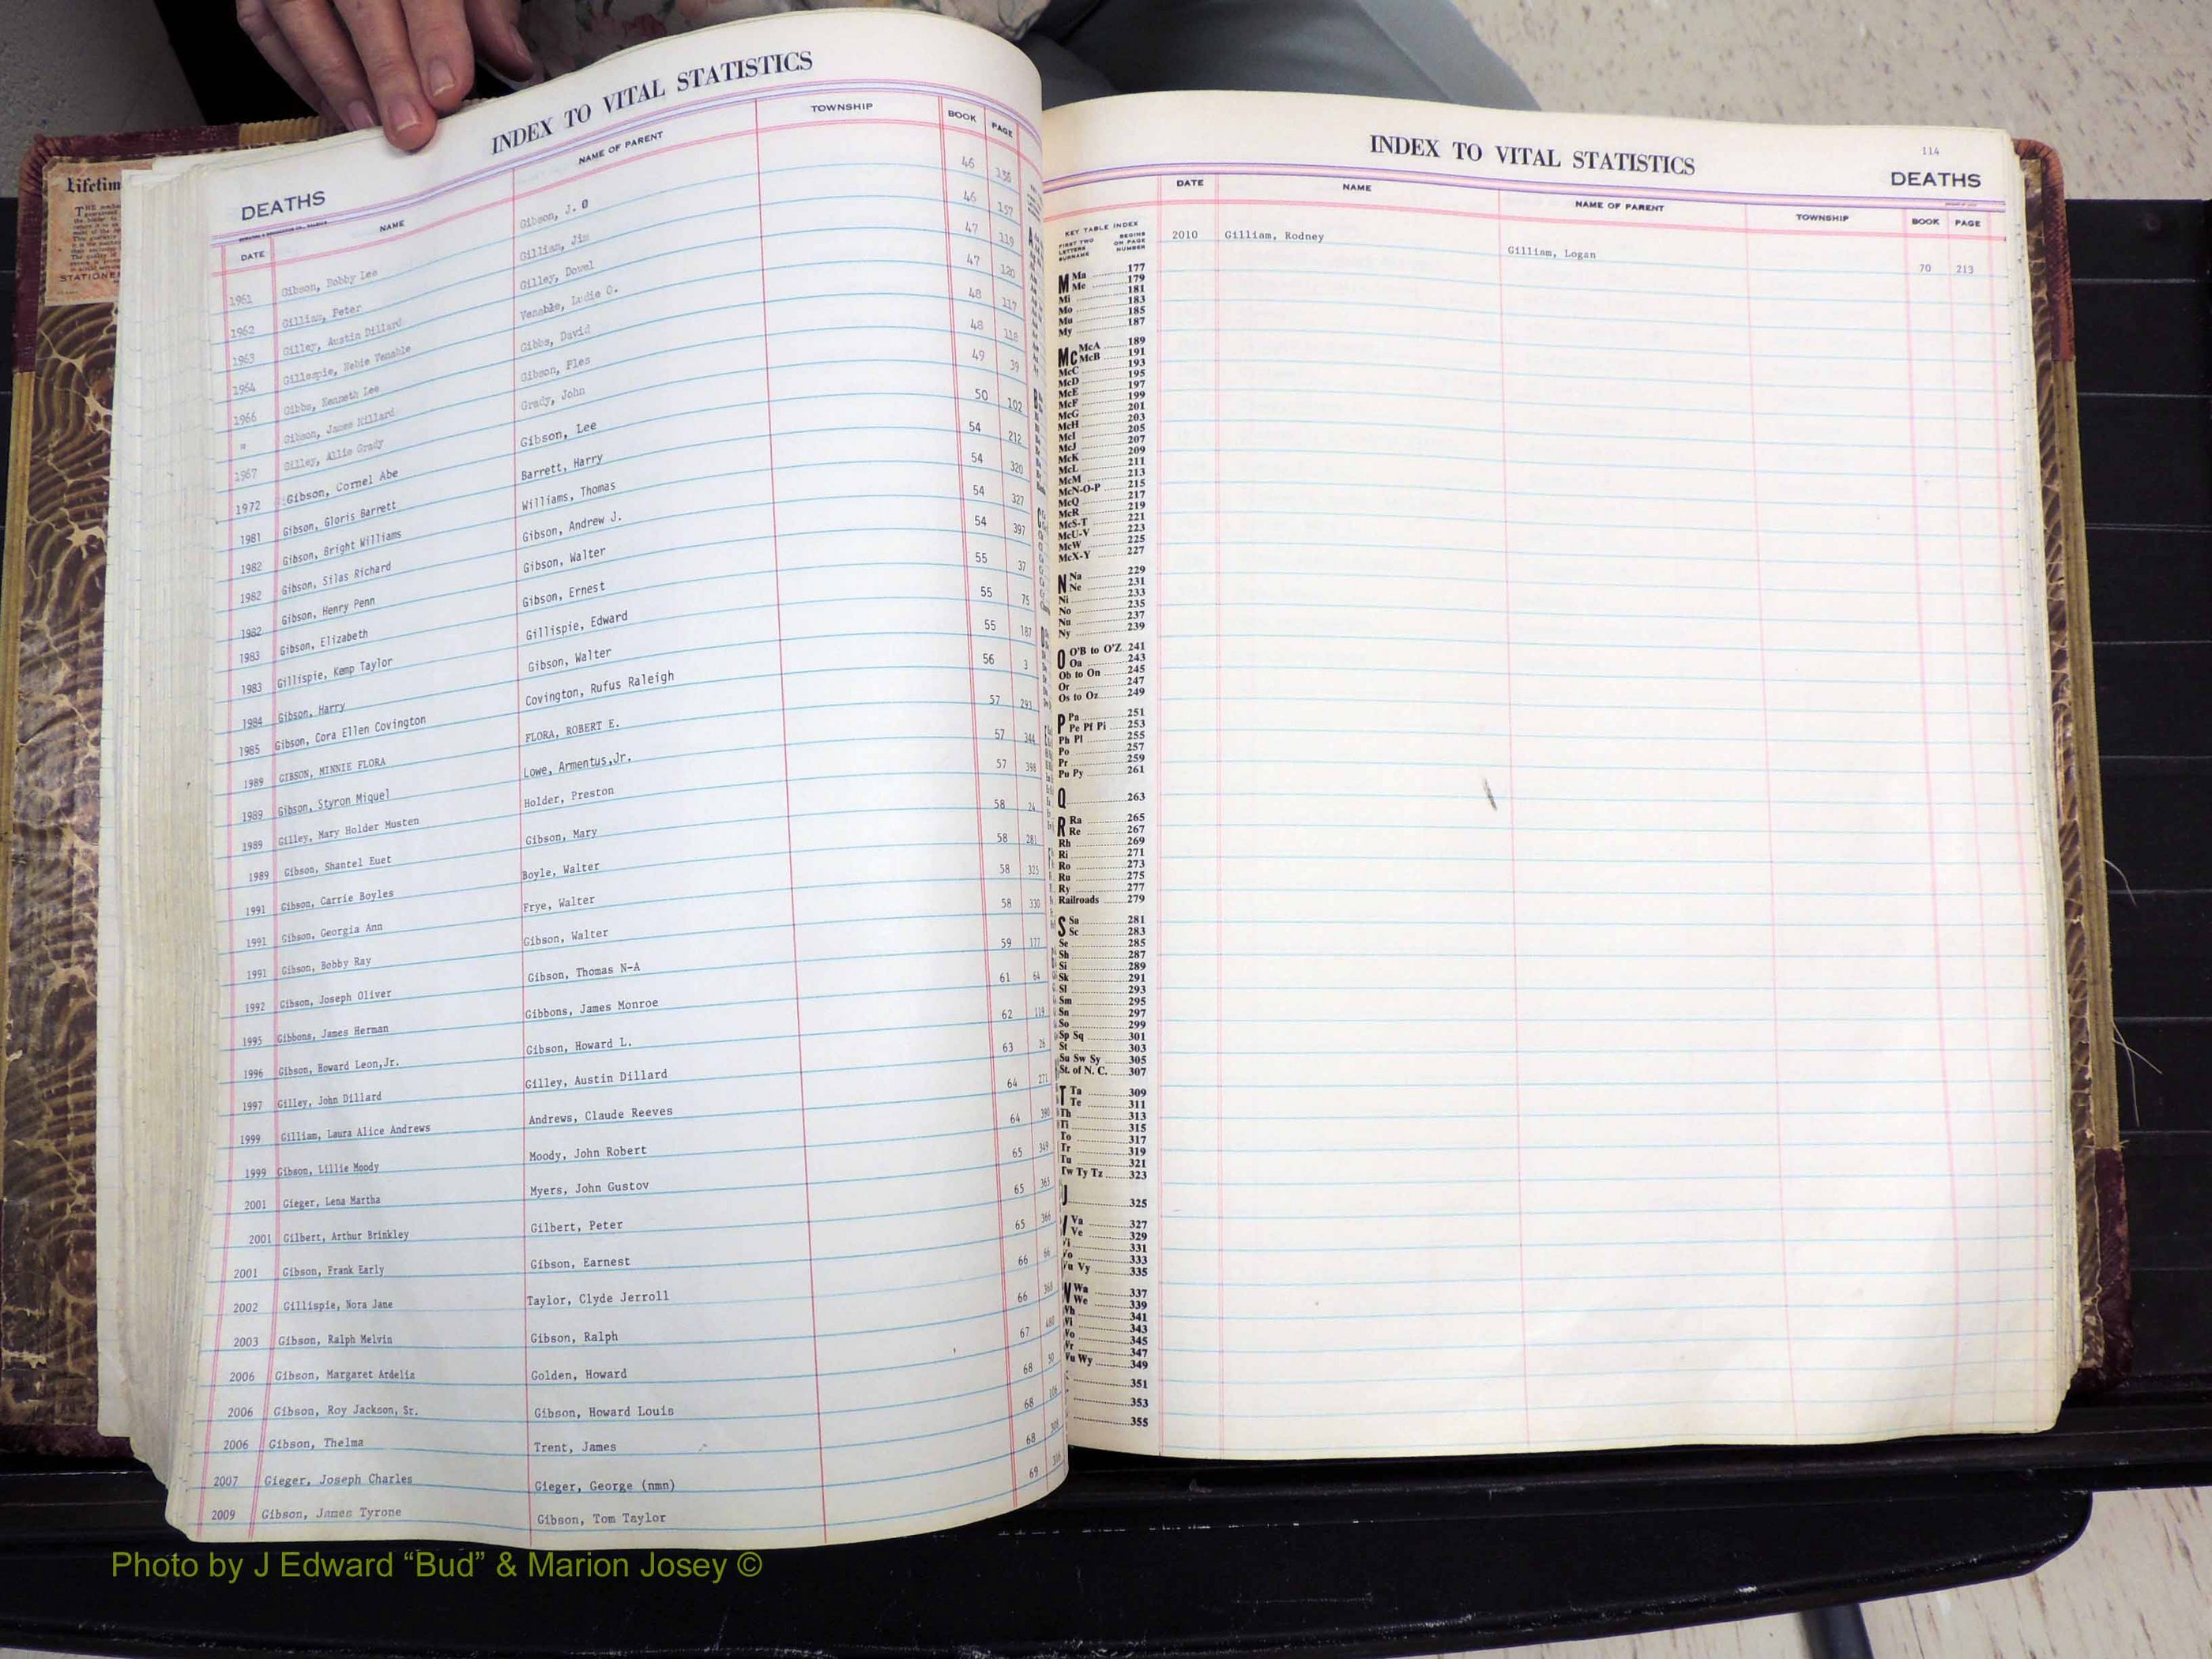 INDEX TO VITAL STATISTICS
DEATHS
DATE NAME NAME OF PARENT TOWNSHIP BOOK PAGE
1961 Gibson, Bobby Lee Gibson, J. O 46 156
1962 Gilliam, Peter Gilliam, Jim 46 157
1963 Gilley, Austin Dillard Gilley, Dowel 47 119
1964 Gillespie, Nebie Venable Venable, Ludie O. 47 120
1966 Gibbs, Kenneth Lee Gibbs, David 48 117
" Gibson, James Millard Gibson, Ples 48 118
1967 Gilley, Allie Grady Grady, John 49 39
1972 Gibson, Cornel Abe Gibson, Lee 50 102
1981 Gibson, Gloris Barrett Barrett, Harry 54 212
1982 Gibson, Bright Williams Williams, Thomas 54 320
1982 Gibson, Silas Richard Gibson, Andrew J. 54 327
1982 Gibson, Henry Penn Gibson, Walter 54 397
1983 Gibson, Elizabeth Gibson, Ernest 55 37
1983 Gillispie, Kemp Taylor Gillispie, Edward 55 75
1984 Gibson, Harry Gibson, Walter 55 187
1985 Gibson, Cora Ellen Covington Covington, Rufus Raleigh 56 3
1989 GIBSON, MINNIE FLORA FLORA, ROBERT E. 57 293
1989 Gibson, Styron Miquel Lowe, Armentus,Jr. 57 344
1989 Gilley, Mary Holder Musten Holder, Preston 57 398
1989 Gibson, Shantel Euet Gibson, Mary 58 24
1991 Gibson, Carrie Boyles Boyle, Walter 58 281
1991 Gibson, Georgia Ann Frye, Walter 58 325
1991 Gibson, Bobby Ray Gibson, Walter 58 330
1992 Gibson, Joseph Oliver Gibson, Thomas N-A 59 177
1995 Gibbons, James Herman Gibbons, James Monroe 61 64
1996 Gibson, Howard Leon,Jr. Gibson, Howard L. 62 119
1997 Gilley, John Dillard Gilley, Austin Dillard 63 26
1999 Gilliam, Laura Alice Andrews Andrews, Claude Reeves 64 271
1999 Gibson, Lillie Moody Moody, John Robert 64 390
2001 Gieger, Lena Martha Myers, John Gustov 65 349
2001 Gilbert, Arthur Brinkley Gilbert, Peter 65 365
2001 Gibson, Frank Early Gibson, Earnest 65 366
2002 Gillispie, Nora Jane Taylor, Clyde Jerroll 66 66
2003 Gibson, Ralph Melvin Gibson, Ralph 66 368
2006 Gibson, Margaret Ardelia Golden, Howard 67 480
2006 Gibson, Roy Jackson, Sr. Gibson, Howard Louis 68 50
2006 Gibson, Thelma Trent, James 68 106
2007 Gieger, Joseph Charles Gieger, George (nmn) 68
2009 Gibson, James Tyrone Gibson, Tom Taylor 69
114
INDEX TO VITAL STATISTICS
DEATHS
DATE NAME NAME OF PARENT TOWNSHIP BOOK PAGE
2010 Gilliam, Rodney Gilliam, Logan 70 213
KEY TABLE INDEX
FIRST TWO LETTERS SURNAME BEGINS ON PAGE NUMBER
M Ma 177
Me 179
Mi 181
Mo 183
Mu 185
My 187
Mc McA 189
McB 191
McC 193
McD 195
McE 197
McF 199
McG 201
McH 203
McI 205
McJ 207
McK 209
McL 211
McM 213
McN-O-P 215
McQ 217
McR 219
McS-T 221
McU-V 223
McW 225
McX-Y 227
N Na 229
Ne 231
Ni 233
No 235
Nu 237
Ny 239
O O'B to O'Z 241
Oa 243
Ob to On 245
Or 247
Os to Oz 249
P Pa 251
Pe Pf Pi 253
Ph Pl 255
Po 257
Pr 259
Pu Py 261
Q 263
R Ra 265
Re 267
Rh 269
Ri 271
Ro 273
Ru 275
Ry 277
Railroads 279
S Sa 281
Sc 283
Se 285
Sh 287
Si 289
Sk 291
Sl 293
Sm 295
Sn 297
So 299
Sp Sq 301
St 303
Su Sw Sy 305
St. of N. C. 307
T Ta 309
Te 311
Th 313
Ti 315
To 317
Tr 319
Tu 321
Tw Ty Tz 323
325
Va 327
Ve 329
331
333
335
Wa 337
We 339
341
343
345
347
349
351
353
355
Lifetim
STATIONE
Photo by J Edward “Bud” & Marion Josey ©